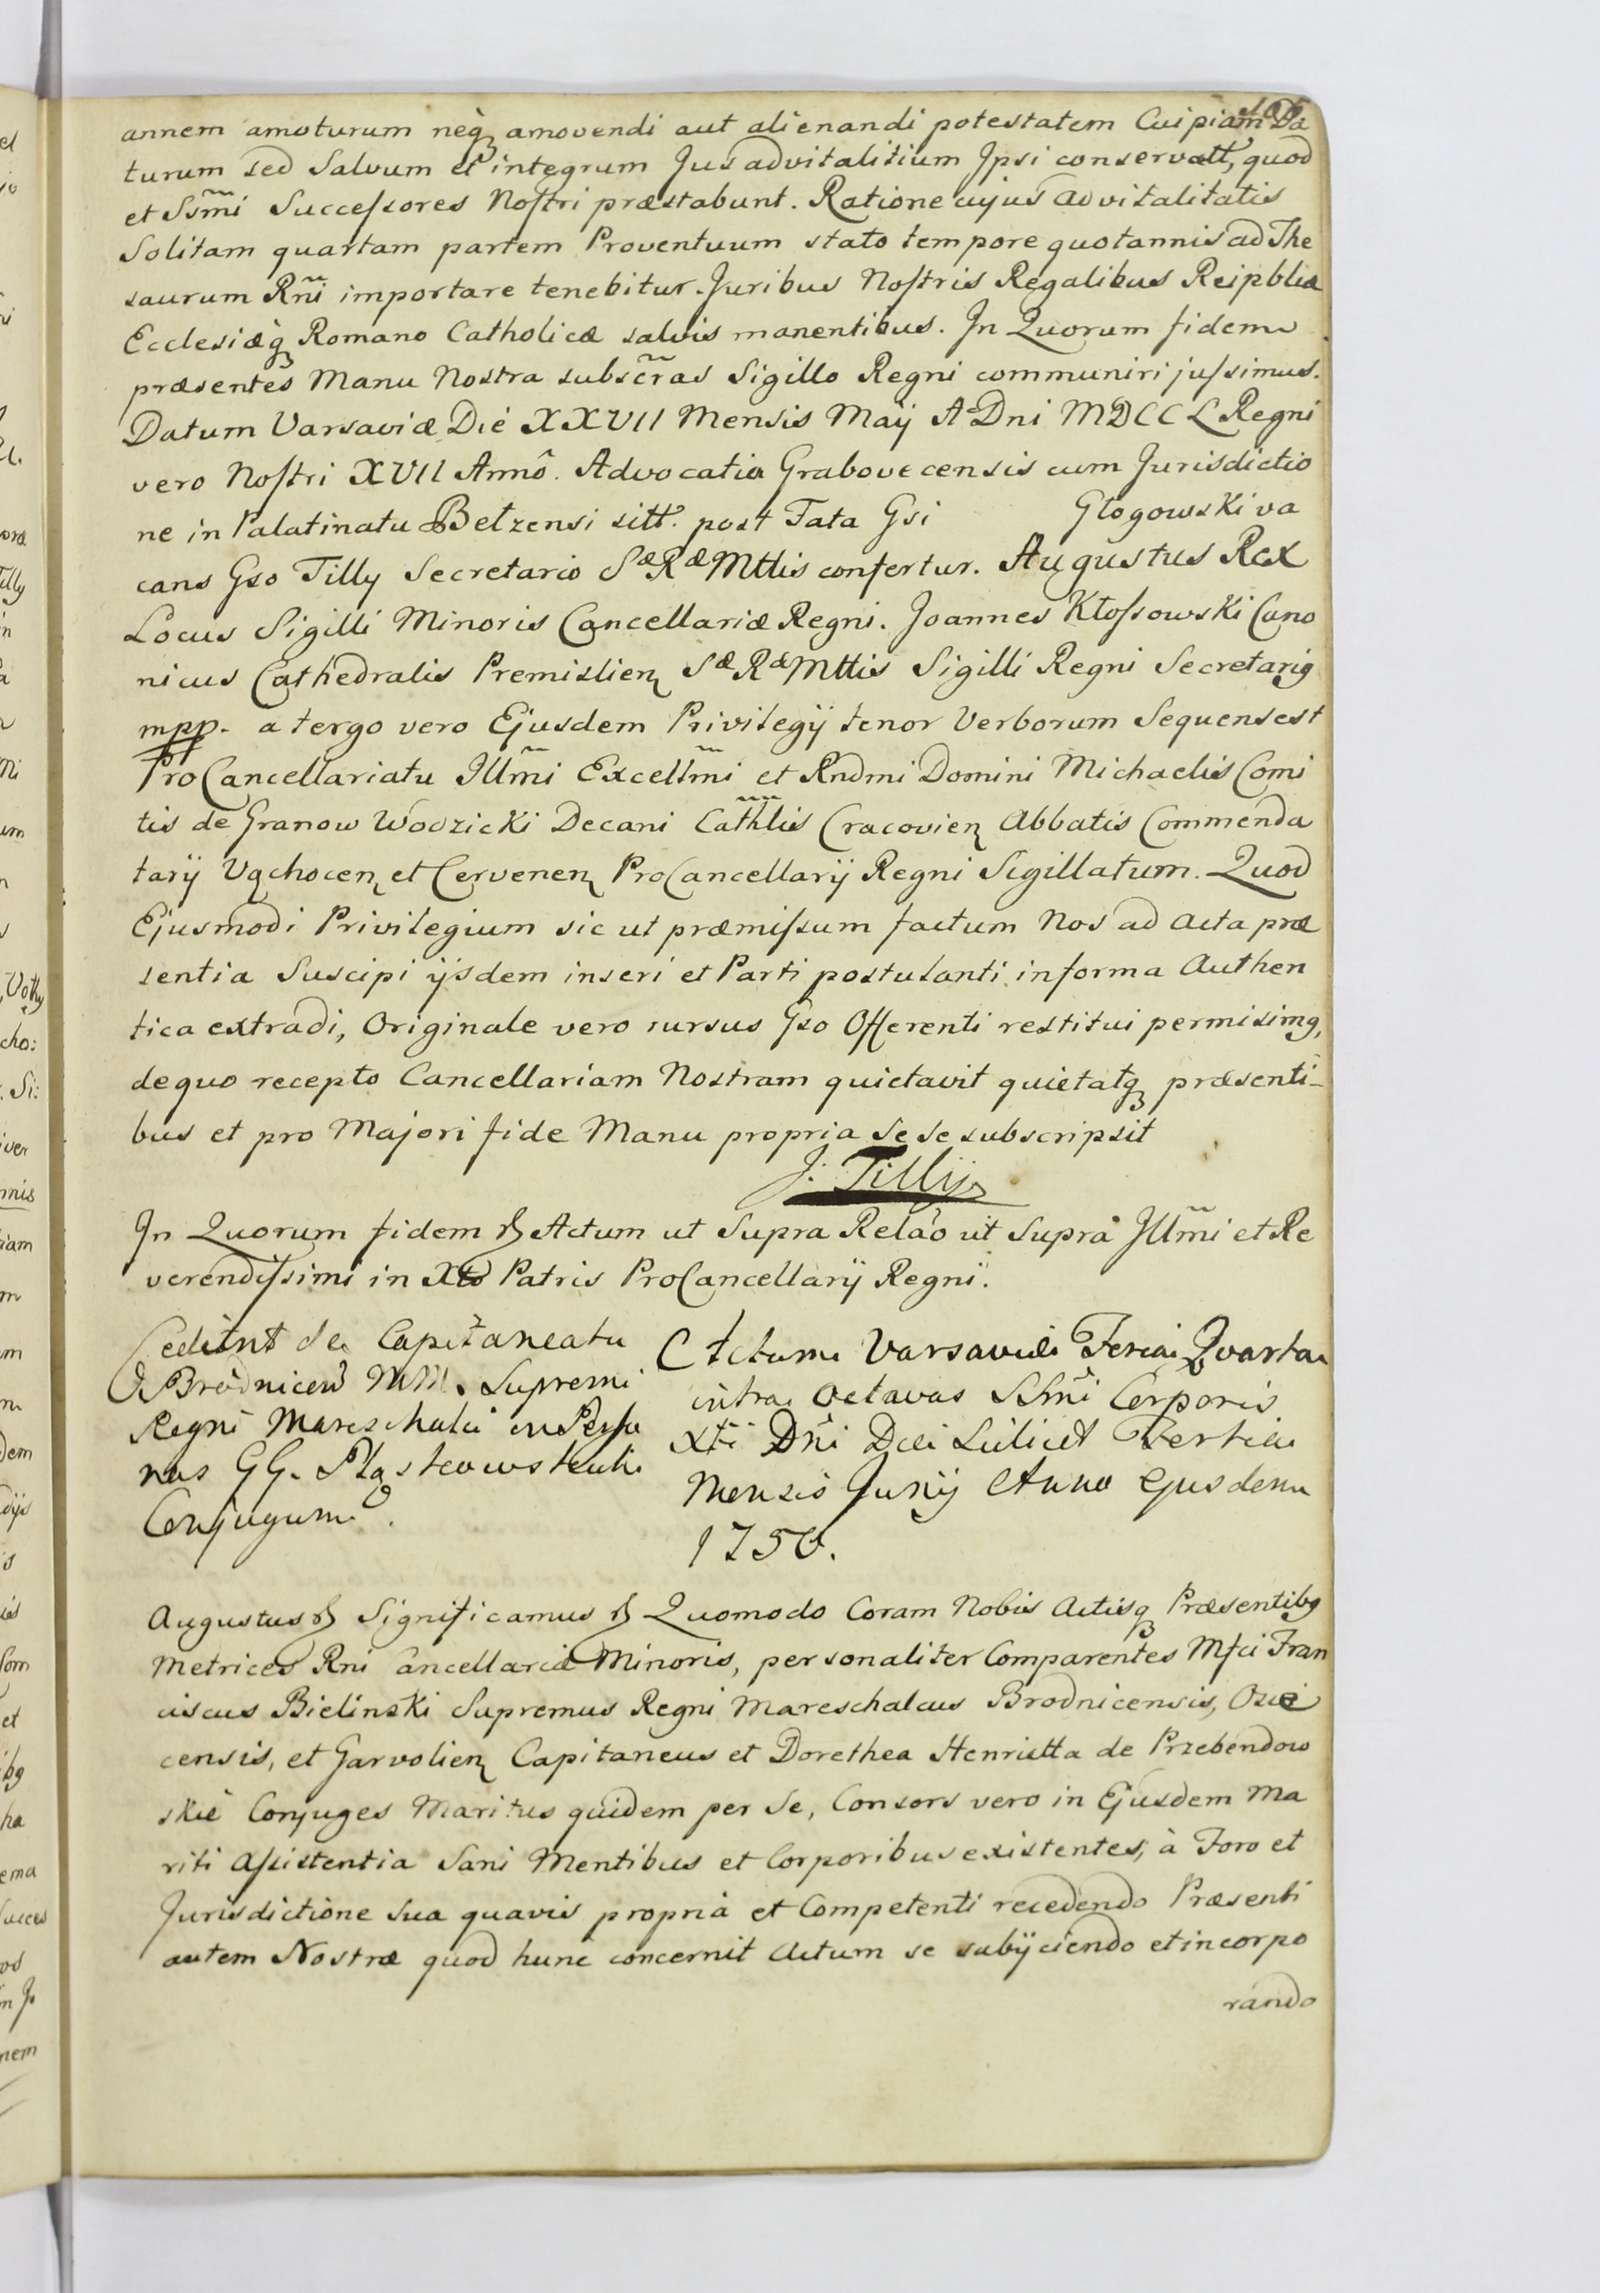 annem amoturum neq́ꝫ amovendi aut alienandi potestatem Cuipiam Da
turum sed Salvum et integrum Jus advitalitium Jpsi conservatt, quod
et Ssm̃i Succeſsores Noſtri præstabunt. Ratione cujus advitalitatis
Solitam quartam partem Proventuum stato tempore quotannis ad The
saurum Rñi importare tenebitur. Juribus Noſtris Regalibus Reipbliæ
Ecclesiæq́ꝫ Romano Catholicæ salvis manentibus. Jn Quorum fidem
præsentes Manu Nostra subscr̃as Sigillo Regni communiri juſsimus.
Datum Varsaviæ Die XXVII Mensis Maÿ Aº Dni MDCCL Regni
vero Noſtri XVII Annô. Advocatia Grabovecensis cum Jurisdictio
ne in Palatinatu Betzensi sitt. post Fata Gsi Glogowski va
cans Gso Tilly Secretario Sæ Ræ Mttis confertur. Augustus Rex
Locus Sigilli Minoris Cancellariæ Regni. Joannes Kłoſsowski Cano
nicus Cathedralis Premislien Sæ Ræ Mttis Sigilli Regni Secretarig
mpp. a tergo vero Ejusdem Privilegÿ tenor Verborum Sequens est
ProCancellariatu Jllm̃i Excellm̃i et Rndmi Domini Michaelis Comi
tis de Granow Wodzicki Decani Cathlis Cracovien Abbatis Commenda
tarÿ Vąchocen et Cervenen ProCancellarÿ Regni Sigillatum. Quod
Ejusmodi Privilegium sic ut præmiſsum factum Nos ad Acta præ
sentia Suscipi ÿsdem inseri et Parti postulanti in forma Authen
tica extradi, Originale vero rursus Gso Offerenti restitui permisimg,
de quo recepto Cancellariam Nostram quietavit quietatq́ꝫ præsenti-
bus et pro Majori fide Manu propria se se subscripsit
J. Tilly
Jn Quorum fidem & Actum ut Supra Relaõ ut Supra Jllm̃i et Re
verendiſsimi in Xto Patris ProCancellarÿ Regni.
Cedunt de Capitaneatu
Brodnicen MM. Supremi
Regni Mareschalci in Perso
nas GG.
Conjugum.
Actum Varsaviæ Feria Quarta
intra Octavas SSm̃i Corporis
Xti Dñi Die Scilicet Tertia
Mensis Junÿ Anno Ejusdem
1750.
Augustus & Significamus & Quomodo Coram Nobis Actisq́ꝫ Præsentibg
Metrices Rni Cancellariæ Minoris, personaliter Comparentes Mfci Fran
ciscus Bielinski Supremus Regni Mareschalcus Brodnicensis, Osie
censis, et Garvolien Capitaneus et Dorethea Henrietta de Przebendow
skie Conjuges Maritus quidem per Se, Consors vero in Ejusdem Ma
riti Aſsistentia Sani Mentibus et Corporibus existentes, à Foro et
Jurisdictione Sua quavis propria et Competenti recedendo Præsenti
autem Nostræ quod hunc concernit Actum se subÿciendo et incorpo
rando